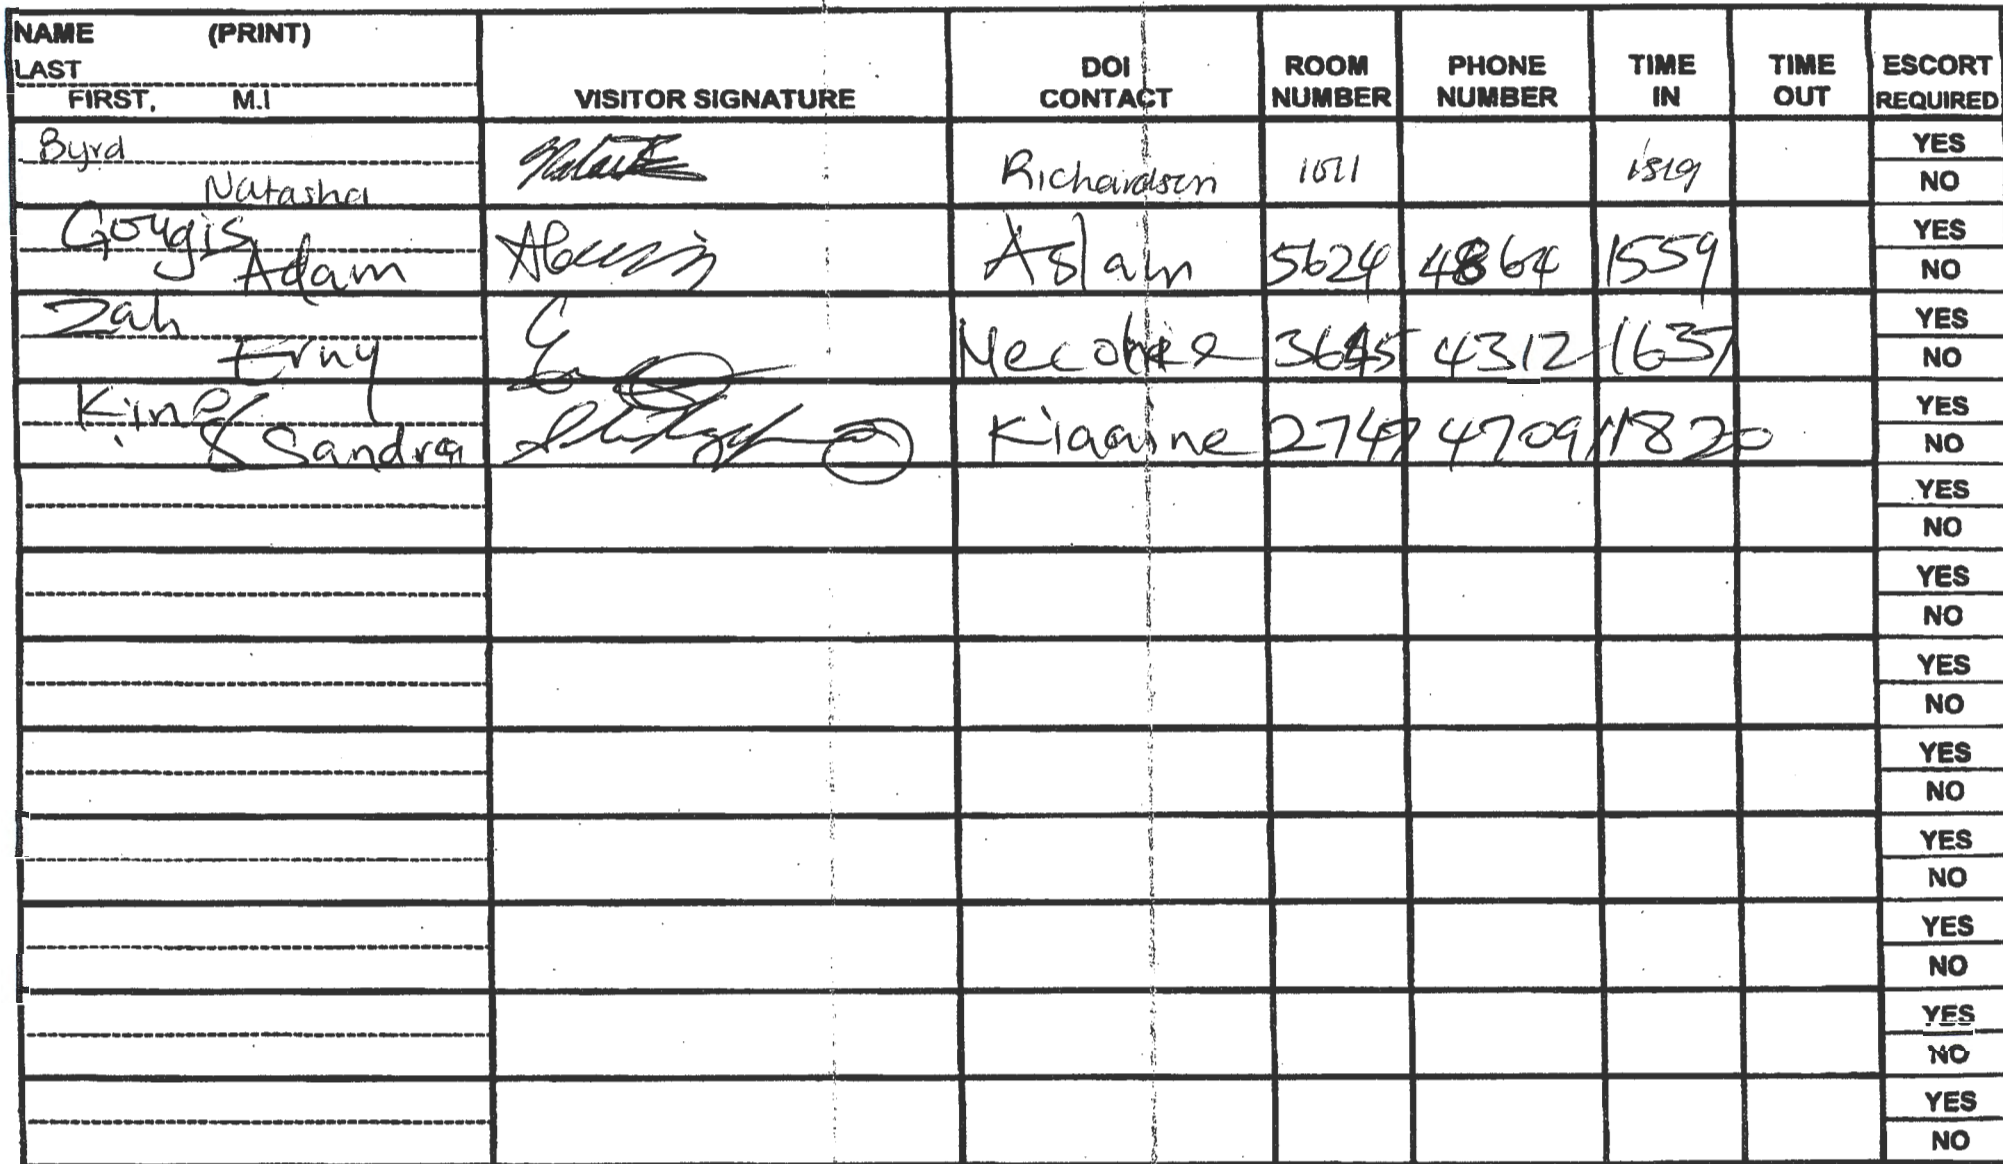 NAME (PRINT)
LAST
FIRST, M.I
VISITOR SIGNATURE
DOI CONTACT
ROOM NUMBER
PHONE NUMBER
TIME IN
TIME OUT
ESCORT REQUIRED
Byrd
Natasha
Richardson
YES
NO
Gorgis
Adam
Aslam 5624 4864 1559
YES
NO
Zah
Erny
3645 4312 1637
YES
NO
King
Sandra
2747 4709 1820
YES
NO
YES
NO
YES
NO
YES
NO
YES
NO
YES
NO
YES
NO
YES
NO
YES
NO